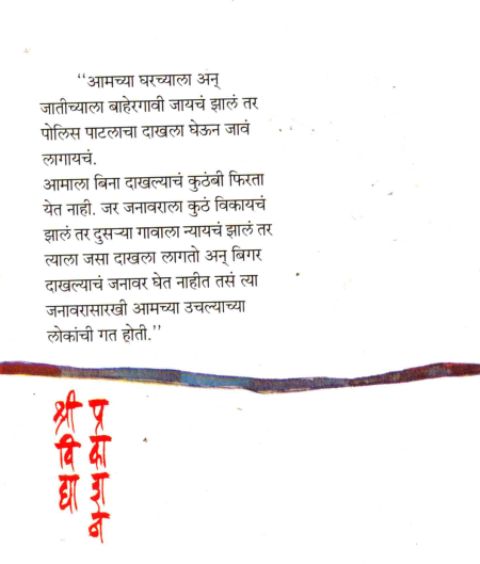 “आमच्या घरच्याला अन्
जातीच्याला बाहेरगावी जायचं झालं तर
पोलिस पाटलाचा दाखला घेऊन जावं
लागायचं.
आमाला बिना दाखल्याचं कुठंबी फिरता
येत नाही. जर जनावराला कुठं विकायचं
झालं तर दुसऱ्या गावाला न्यायचं झालं तर
त्याला जसा दाखला लागतो अन् बिगर
दाखल्याचं जनावर घेत नाहीत तसं त्या
जनावरासारखी आमच्या उचल्याच्या
लोकांची गत होती.”
श्रीविद्या
प्रकाशन